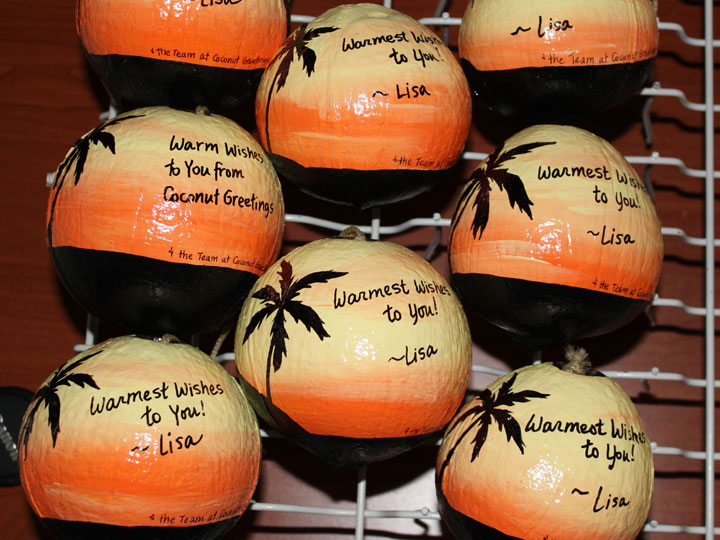 Lisa
& the Team at Coconut
Warmest
to You!
~ Lisa
& the Team at
~ Lisa
& the Team at Coconut Greetings
Warm Wishes
to You from
Coconut Greetings
& the Team at Coconut
Warmest Wishes
to You!
~ Lisa
& the Team at Coconut
Warmest Wishes
to You!
~ Lisa
Warmest Wishes
to You!
~ Lisa
& the Team at Coconut
Warmest Wishes
to You!
~ Lisa